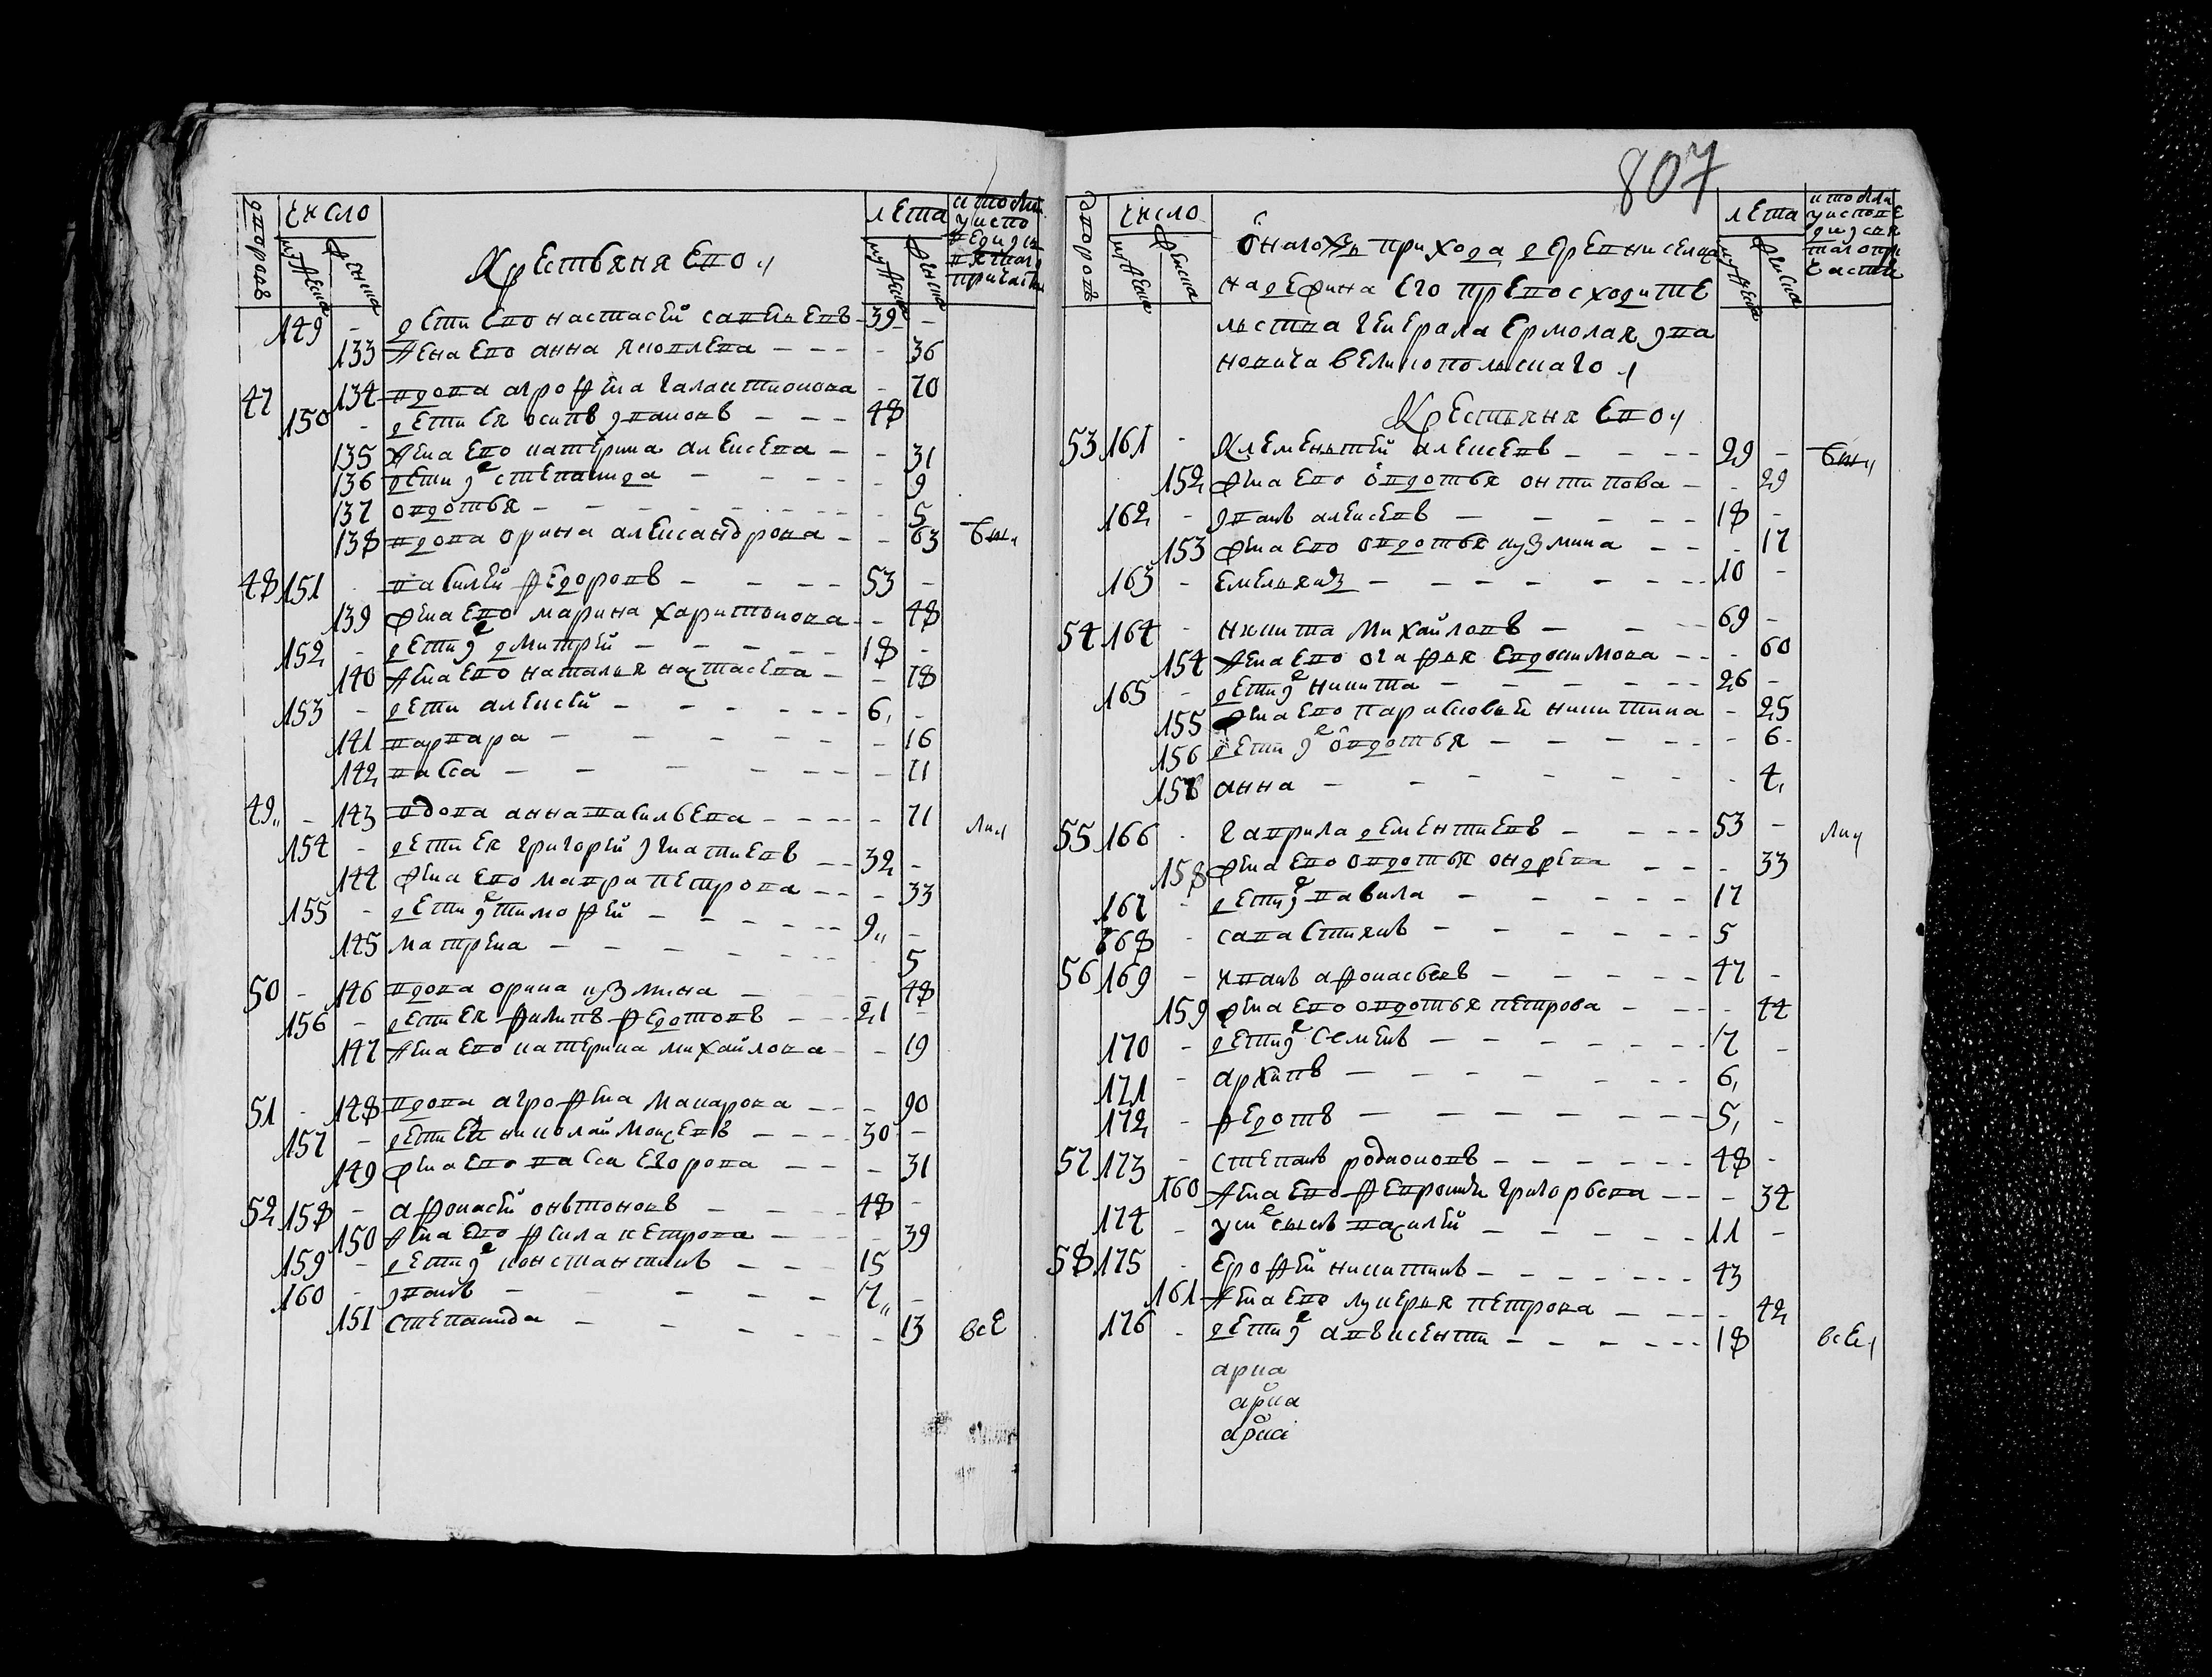 807
дворовъ число лета
мужеска женска
Крестьяня ево
149 - дети ево настасей савельевъ - 39 -
133 жена ево анна яковлева - - - - 36
47 134 вдова агрофена галактионова - 70
150 - дети ея осипъ ивановъ - - - 48
135 жена ево катерина алексева - - 31
136 дети их степанида - - - - 9
137 овдотья - - - - - - 5
138 вдова орина александрова - - 63 бы
48 151 василей федоровъ - - - - 53 -
139 жена ево марина харитонова - - 48
152 - дети их дмитрей - - - - - 18 -
140 жена ево наталья настасева - - 18
153 - дети алексей - - - - - - 6 -
141 варвара - - - - - - 16
142 васса - - - - - - - 11
49 - 143 вдова анна васильева - - - - 71 ли
154 - дети ея григорей игнатиевъ - - 32 -
144 жена ево мавра петрова - - - 33
155 - дети их тимофей - - - - - 9 -
145 матрена - - - - - - - 5
50 - 146 вдова орина кузмина - - - 48
156 - дети ея филипъ федотовъ - - - 21 -
147 жена ево катерина михайлова - - 19
51 - 148 вдова агрофена макарова - - - 90
157 - дети ея николай мосеевъ - - - - 30 -
149 жена ево васса егорова - - - 31
52 158 - афонасей онътоновъ - - - 48 -
150 жена ево фекла петрова - - - - 39
159 - дети их константинъ - - - 15
160 - иванъ - - - - - 7 -
151 степанида - - - - - - 13 все
дворовъ число лета
мужеска женска
Оного жъ прихода деревни селища
надежина его превосходите
льства генерала ермолая ива
новича великопольскаго
Крестьяня ево
53 161 - Клементей алексевъ - - - - 29 - бы
152 жена ево овдотья онтипова - - 29
162 - иванъ алексевъ - - - - - 18 -
153 жена ево овдотья кузмина - - - 17
163 - емельянъ - - - - - - - 10 -
54 164 - никита михайловъ - - - - 69 -
154 жена ево огафья евдокимова - - - 60
165 - дети их никита - - - - - - 26 -
155 жена ево парасковья никитина - 25
156 дети их овдотья - - - - - - 6
157 анна - - - - - - - 4
55 166 - гаврила дементиевъ - - - - 53 - ли
158 жена ево овдотья ондрева - - - 33
167 - дети их вавила - - - - - 17
168 - савастиянъ - - - - - - 5
56 169 - иванъ афонасьевъ - - - - - 47 -
159 жена ево овдотья петрова - - - - 44
170 - дети их семенъ - - - - - - - 7 -
171 - архипъ - - - - - - - 6
172 - федотъ - - - - - - - - 5 -
57 173 - степанъ родионовъ - - - - - - 48 -
160 жена ево февронья григорьева - - - 34
174 - у них сынъ василей - - - - - 11 -
58 175 - ерофей никитинъ - - - - - - 43
161 жена ево лукерья петрова - - - - 42
176 - дети их авъксенти - - - - - - 18 все